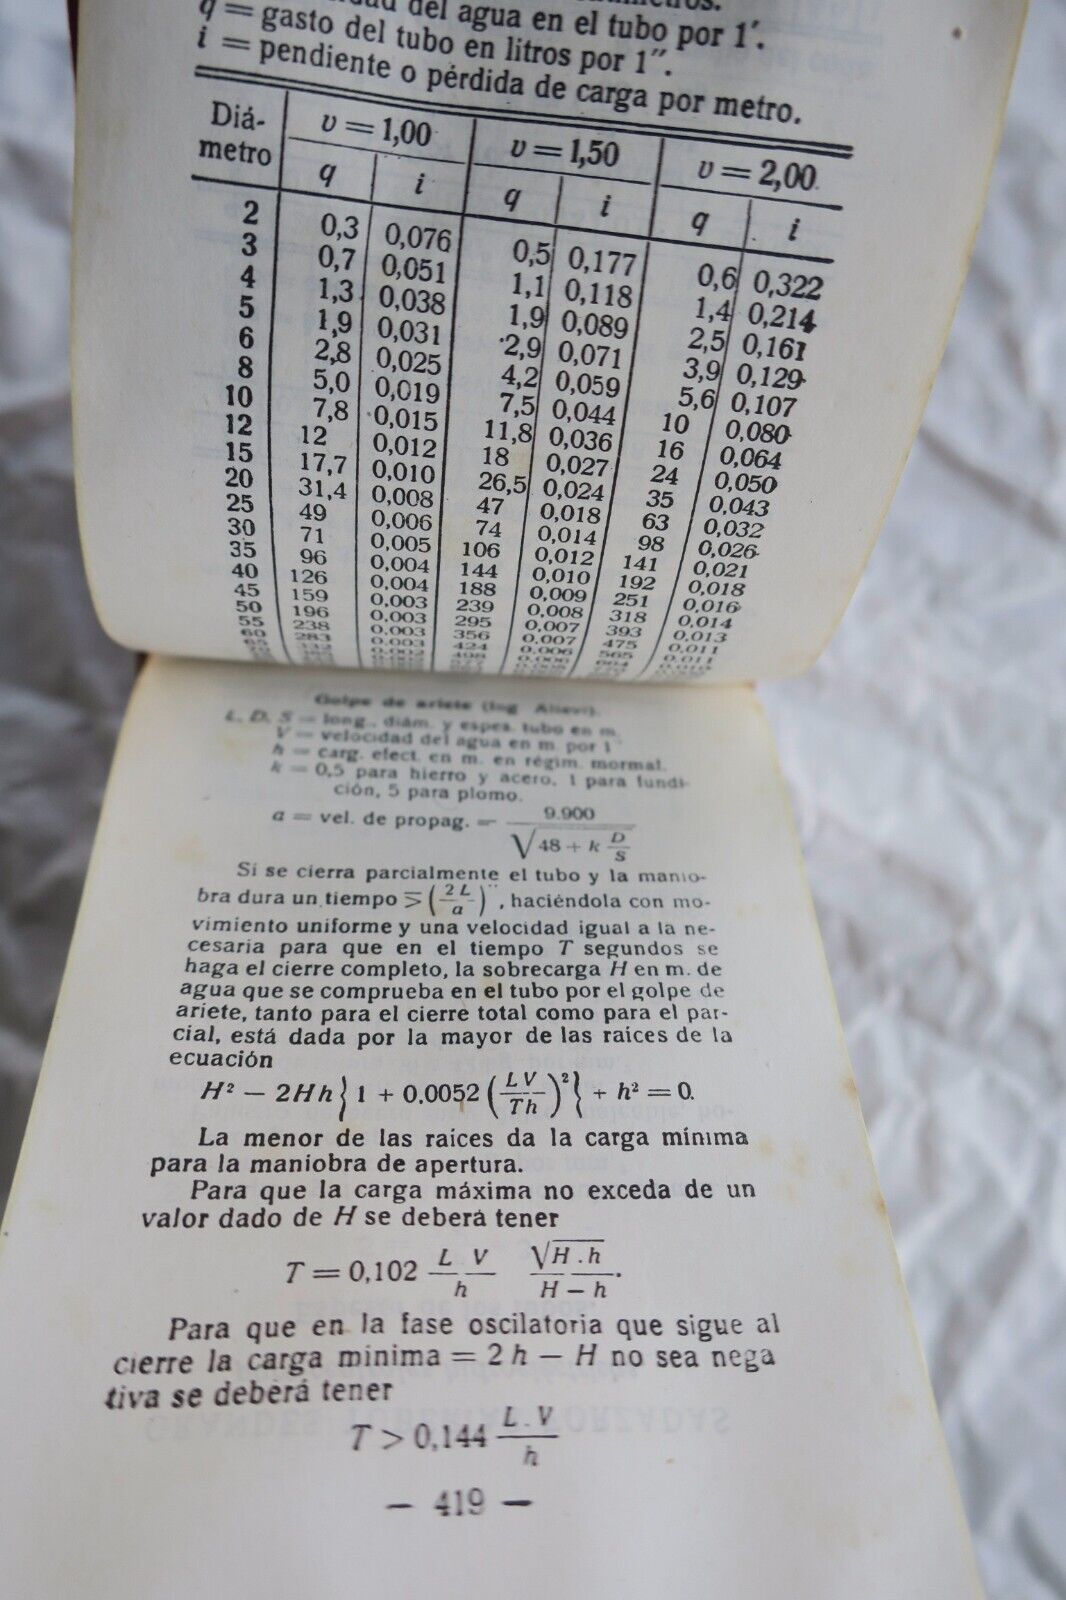 del agua en el tubo por 1′.
q = gasto del tubo en litros por 1″.
i = pendiente o pérdida de carga por metro.
Diá- v = 1,00 v = 1,50 v = 2,00
metro q i q i q i
2 0,3 0,076 0,5 0,177 0,6 0,322
3 0,7 0,051 1,1 0,118 1,4 0,214
4 1,3 0,038 1,9 0,089 2,5 0,161
5 1,9 0,031 2,9 0,071 3,9 0,129
6 2,8 0,025 4,2 0,059 5,6 0,107
8 5,0 0,019 7,5 0,044 10 0,080
10 7,8 0,015 11,8 0,036 16 0,064
12 12 0,012 18 0,027 24 0,050
15 17,7 0,010 26,5 0,024 35 0,043
20 31,4 0,008 47 0,018 63 0,032
25 49 0,006 74 0,014 98 0,026
30 71 0,005 106 0,012 141 0,021
35 96 0,004 144 0,010 192 0,018
40 126 0,004 188 0,009 251 0,016
45 159 0,003 239 0,008 318 0,014
50 196 0,003 295 0,007 393 0,013
55 238 0,003 356 0,007 475 0,011
60 283 0,002 424 0,006 565 0,011
Golpe de ariete (Ing Alievi).
L, D, S = long., diám. y espes. tubo en m.
V = velocidad del agua en m. por 1″
h = carg. efect. en m. en régim. mormal.
k = 0,5 para hierro y acero, 1 para fundi-
ción, 5 para plomo.
a = vel. de propag. = 9.900 / √48 + k D/S
Si se cierra parcialmente el tubo y la manio-
bra dura un tiempo ⋝ (2 L/a)″, haciéndola con mo-
vimiento uniforme y una velocidad igual a la ne-
cesaria para que en el tiempo T segundos se
haga el cierre completo, la sobrecarga H en m. de
agua que se comprueba en el tubo por el golpe de
ariete, tanto para el cierre total como para el par-
cial, está dada por la mayor de las raices de la
ecuación
H² − 2Hh { 1 + 0,0052 (LV/Th)² { + h² = 0.
La menor de las raíces da la carga mínima
para la maniobra de apertura.
Para que la carga máxima no exceda de un
valor dado de H se deberá tener
T = 0,102 L V/h √H . h/H − h.
Para que en la fase oscilatoria que sigue al
cierre la carga minima = 2 h − H no sea nega
tiva se deberá tener
T > 0,144 L . V/h
— 419 —